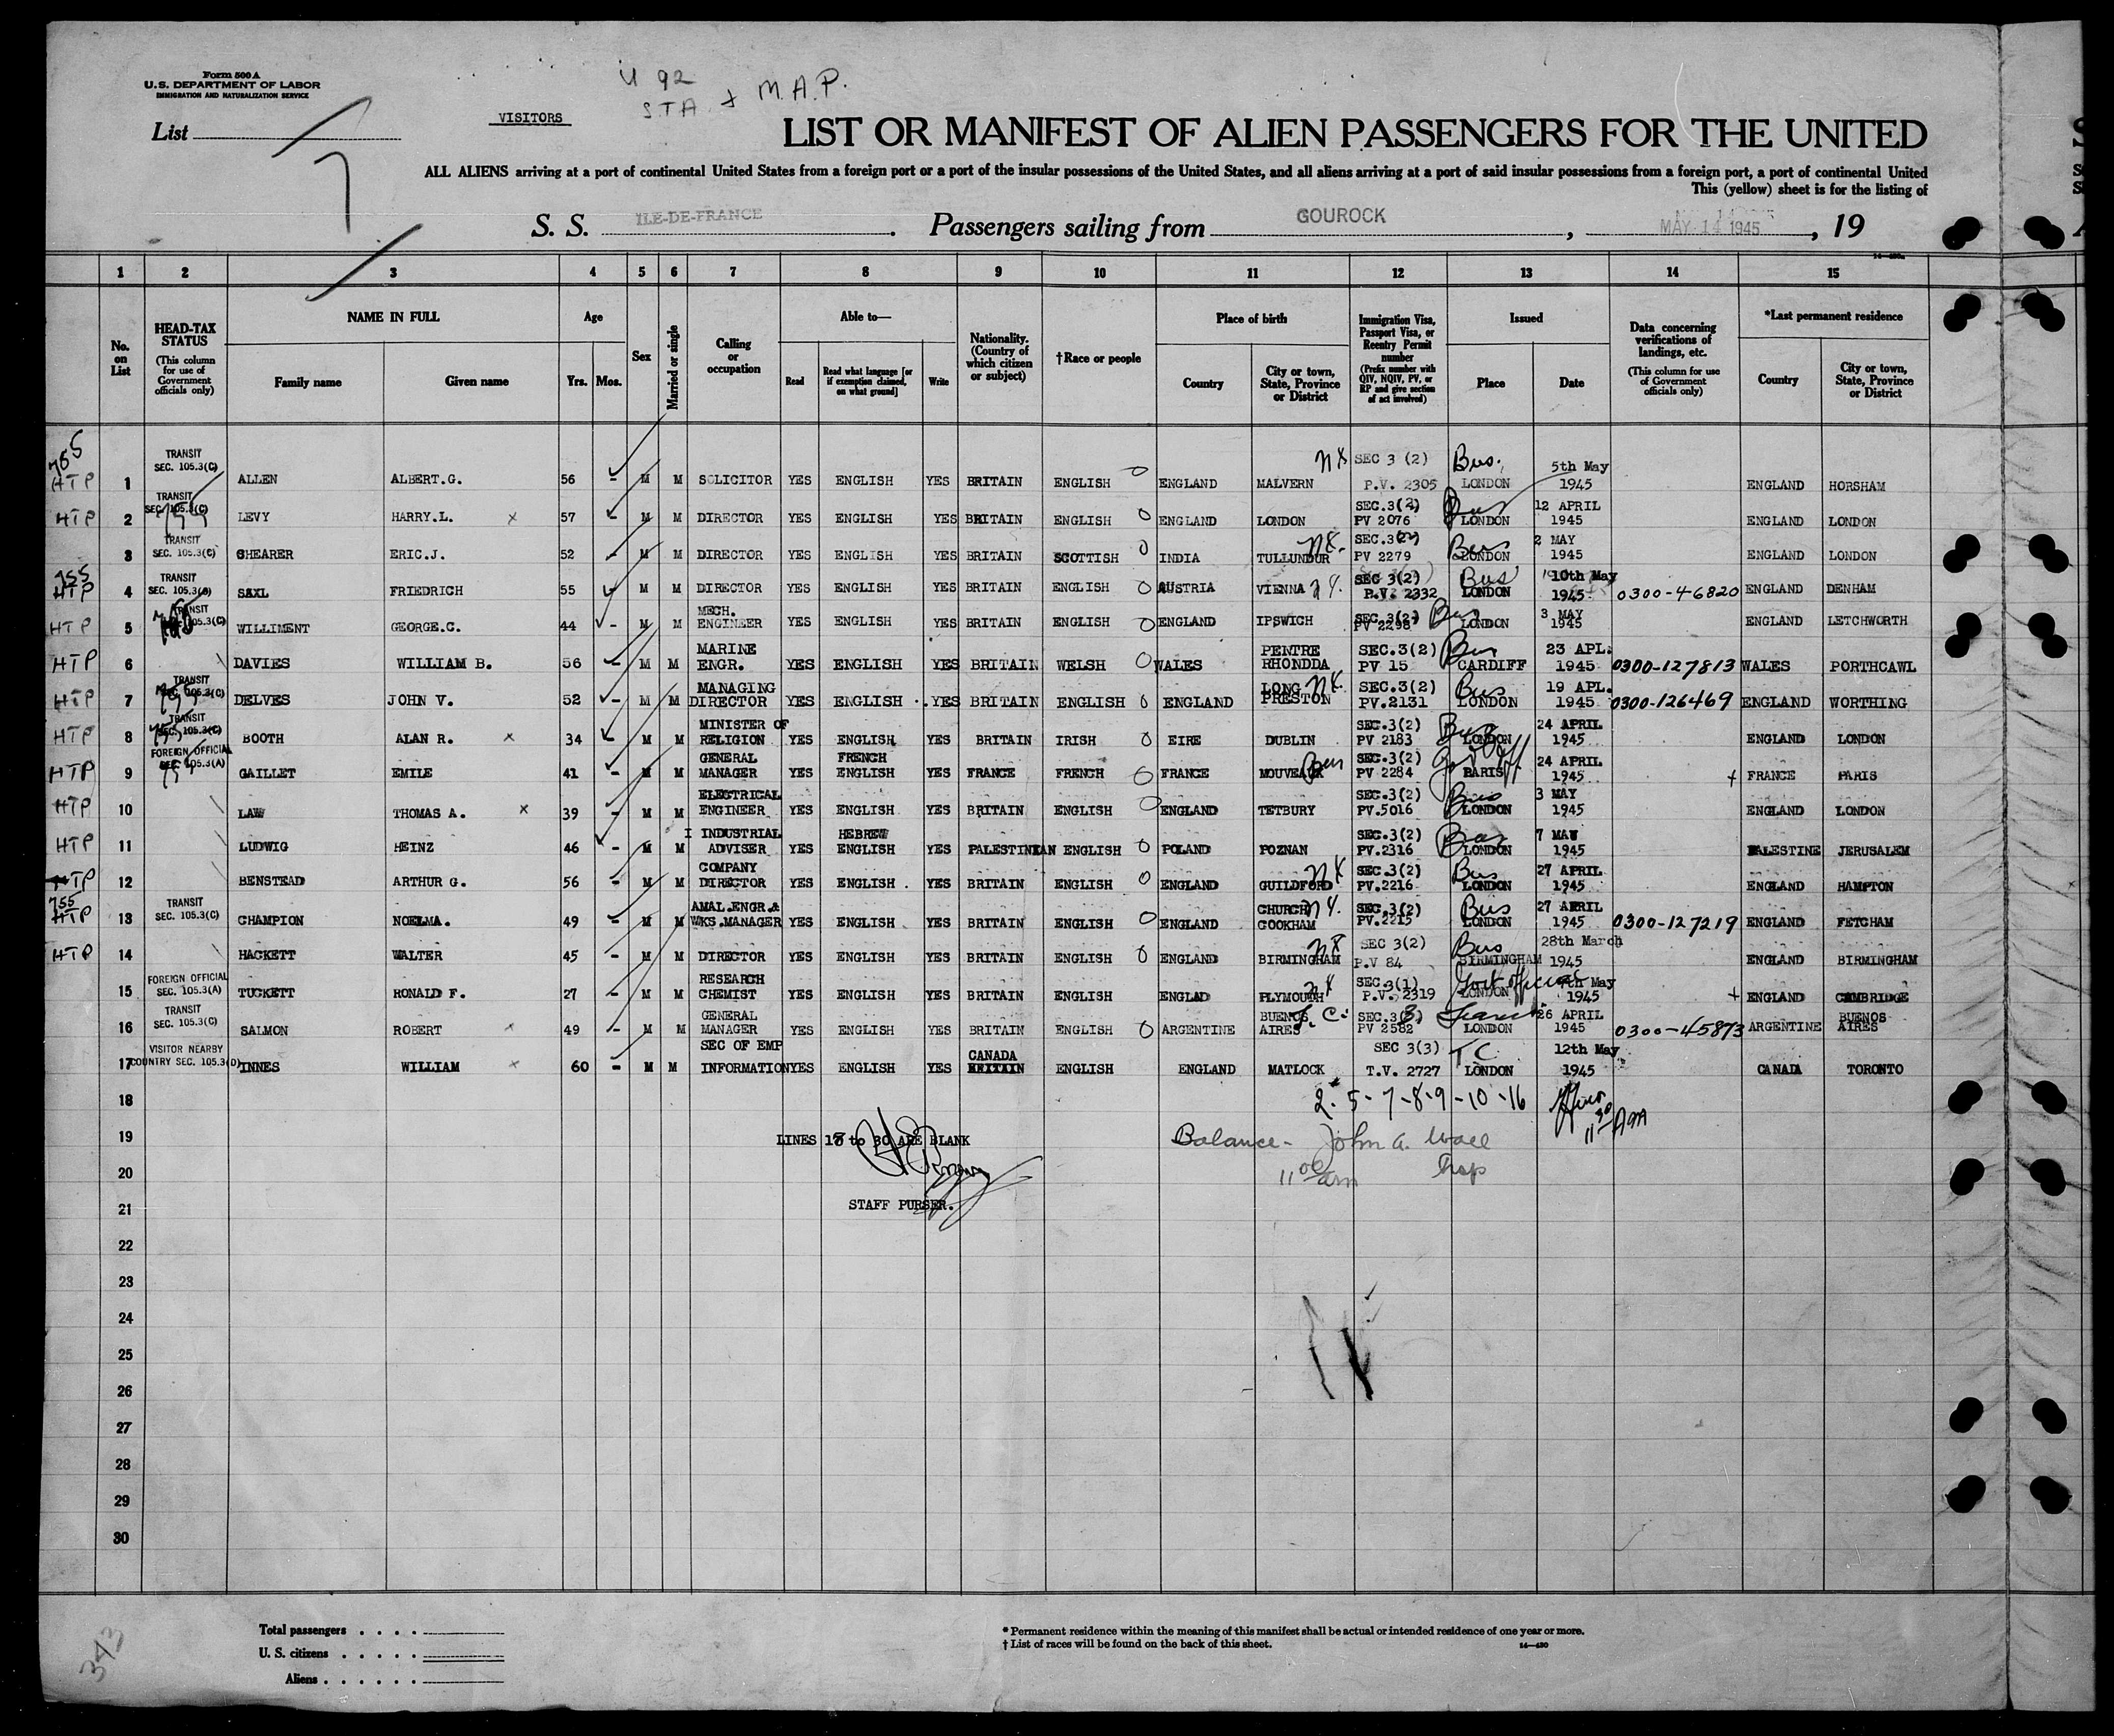 Form 500 A
U.S. DEPARTMENT OF LABOR
IMMIGRATION AND NATURALIZATION SERVICE
List
7
VISITORS
U 92
STA + M.A.P.
LIST OR MANIFEST OF ALIEN PASSENGERS FOR THE UNITED
ALL ALIENS arriving at a port of continental United States from a foreign port or a port of the insular possessions of the United States, and all aliens arriving at a port of said insular possessions from a foreign port, a port of continental United
This (yellow) sheet is for the listing of
S. S. ILE-DE-FRANCE. Passengers sailing from GOUROCK, MAY 14 1945, 19
1 2 3 4 5 6 7 8 9 10 11 12 13 14 15
No. on List
HEAD-TAX STATUS (This column for use of Government officials only)
NAME IN FULL
Family name Given name
Age
Yrs. Mos.
Sex
Married or single
Calling or occupation
Able to—
Read Read what language [or if exemption claimed, on what ground] Write
Nationality. (Country of which citizen or subject)
†Race or people
Place of birth
Country City or town, State, Province or District
Immigration Visa, Passport Visa, or Reentry Permit number (Prefix number with QIV, NQIV, PV, or RP and give section of act involved)
Issued
Place Date
Data concerning verifications of landings, etc. (This column for use of Government officials only)
*Last permanent residence
Country City or town, State, Province or District
755 HTP 1 TRANSIT SEC. 105.3(C) ALLEN ALBERT.G. 56 - M M SOLICITOR YES ENGLISH YES BRITAIN ENGLISH 0 ENGLAND MALVERN SEC 3 (2) P.V. 2305 Bus. LONDON 5th May 1945 ENGLAND HORSHAM
HTP 2 TRANSIT SEC. 105.3(C) LEVY HARRY.L. x 57 - M M DIRECTOR YES ENGLISH YES BRITAIN ENGLISH 0 ENGLAND LONDON SEC.3(2) PV 2076 Bus LONDON 12 APRIL 1945 ENGLAND LONDON
3 TRANSIT SEC. 105.3(C) SHEARER ERIC.J. 52 - M M DIRECTOR YES ENGLISH YES BRITAIN SCOTTISH 0 INDIA TULLUNDUR SEC.3(2) PV 2279 Bus LONDON 2 MAY 1945 ENGLAND LONDON
755 HTP 4 TRANSIT SEC. 105.3(C) SAXL FRIEDRICH 55 - M M DIRECTOR YES ENGLISH YES BRITAIN ENGLISH 0 AUSTRIA VIENNA SEC 3(2) P.V. 2332 Bus LONDON 10th May 1945 0300-46820 ENGLAND DENHAM
HTP 5 TRANSIT SEC. 105.3(C) WILLIMENT GEORGE.C. 44 - M M MECH. ENGINEER YES ENGLISH YES BRITAIN ENGLISH 0 ENGLAND IPSWICH SEC.3(2) PV 2298 Bus LONDON 3 MAY 1945 ENGLAND LETCHWORTH
HTP 6 DAVIES WILLIAM B. 56 - M M MARINE ENGR. YES ENGLISH YES BRITAIN WELSH 0 WALES PENTRE RHONDDA SEC.3(2) PV 15 Bus CARDIFF 23 APL. 1945 0300-127813 WALES PORTHCAWL
HTP 7 TRANSIT SEC. 105.3(C) DELVES JOHN V. 52 - M M MANAGING DIRECTOR YES ENGLISH YES BRITAIN ENGLISH 0 ENGLAND LONG PRESTON SEC.3(2) PV.2131 Bus LONDON 19 APL. 1945 0300-126469 ENGLAND WORTHING
HTP 8 TRANSIT SEC. 105.3(C) BOOTH ALAN R. x 34 - M M MINISTER OF RELIGION YES ENGLISH YES BRITAIN IRISH 0 EIRE DUBLIN SEC.3(2) PV 2183 Bus LONDON 24 APRIL 1945 ENGLAND LONDON
HTP 9 FOREIGN OFFICIAL SEC. 105.3(A) GAILLET EMILE 41 - M M GENERAL MANAGER YES FRENCH ENGLISH YES FRANCE FRENCH 0 FRANCE SEC.3(2) PV 2284 PARIS 24 APRIL 1945 + FRANCE PARIS
HTP 10 LAW THOMAS A. x 39 - M M ELECTRICAL ENGINEER YES ENGLISH YES BRITAIN ENGLISH 0 ENGLAND TETBURY SEC.3(2) PV.5016 Bus LONDON 3 MAY 1945 ENGLAND LONDON
HTP 11 LUDWIG HEINZ 46 - M M I INDUSTRIAL ADVISER YES HEBREW ENGLISH YES PALESTINIAN ENGLISH 0 POLAND POZNAN SEC.3(2) PV.2316 Bus LONDON 7 MAY 1945 PALESTINE JERUSALEM
HTP 12 BENSTEAD ARTHUR G. 56 - M M COMPANY DIRECTOR YES ENGLISH YES BRITAIN ENGLISH 0 ENGLAND GUILDFORD SEC.3(2) PV.2216 Bus LONDON 27 APRIL 1945 ENGLAND HAMPTON
755 HTP 13 TRANSIT SEC. 105.3(C) CHAMPION NOELMA. 49 - M M AMAL.ENGR.& WKS.MANAGER YES ENGLISH YES BRITAIN ENGLISH 0 ENGLAND CHURCH COOKHAM SEC.3(2) PV.2215 Bus LONDON 27 APRIL 1945 0300-127219 ENGLAND FETCHAM
HTP 14 HACKETT WALTER 45 - M M DIRECTOR YES ENGLISH YES BRITAIN ENGLISH 0 ENGLAND BIRMINGHAM SEC 3(2) P.V 84 Bus BIRMINGHAM 28th March 1945 ENGLAND BIRMINGHAM
15 FOREIGN OFFICIAL SEC. 105.3(A) TUCKETT RONALD F. 27 - M M RESEARCH CHEMIST YES ENGLISH YES BRITAIN ENGLISH ENGLAD PLYMOUTH SEC.3(1) P.V. 2319 Govt official LONDON 7th May 1945 + ENGLAND CAMBRIDGE
16 TRANSIT SEC. 105.3(C) SALMON ROBERT x 49 - M M GENERAL MANAGER YES ENGLISH YES BRITAIN ENGLISH 0 ARGENTINE BUENOS AIRES SEC.3(3) PV 2582 LONDON 26 APRIL 1945 0300-45873 ARGENTINE BUENOS AIRES
17 VISITOR NEARBY COUNTRY SEC. 105.3(D) INNES WILLIAM x 60 - M M SEC OF EMP INFORMATION YES ENGLISH YES CANADA BRITAIN ENGLISH ENGLAND MATLOCK SEC 3(3) T.V. 2727 T.C. LONDON 12th May 1945 CANADA TORONTO
18 2-5-7-8-9-10-16
19 LINES 18 to 30 ARE BLANK Balance - John A. Wall
20 11 00 am Insp
21 STAFF PURSER.
22
23
24
25
26
27
28
29
30
343
Total passengers
U. S. citizens
Aliens
* Permanent residence within the meaning of this manifest shall be actual or intended residence of one year or more.
† List of races will be found on the back of this sheet.
14—430